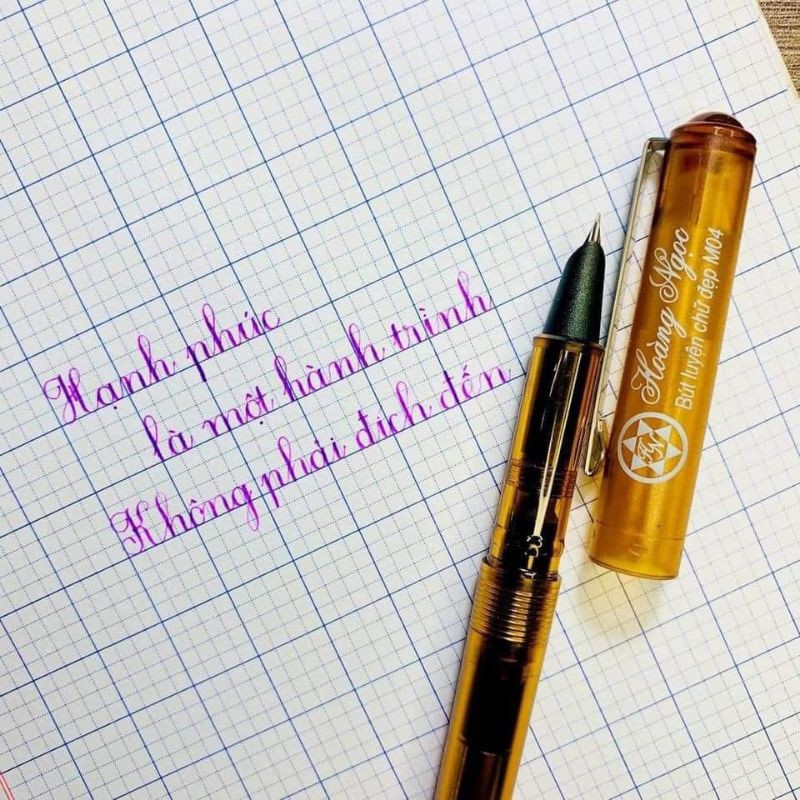 Hạnh phúc
là một hành trình
Không phải đích đến
Hoàng Ngọc
Bút luyện chữ đẹp M04
HN